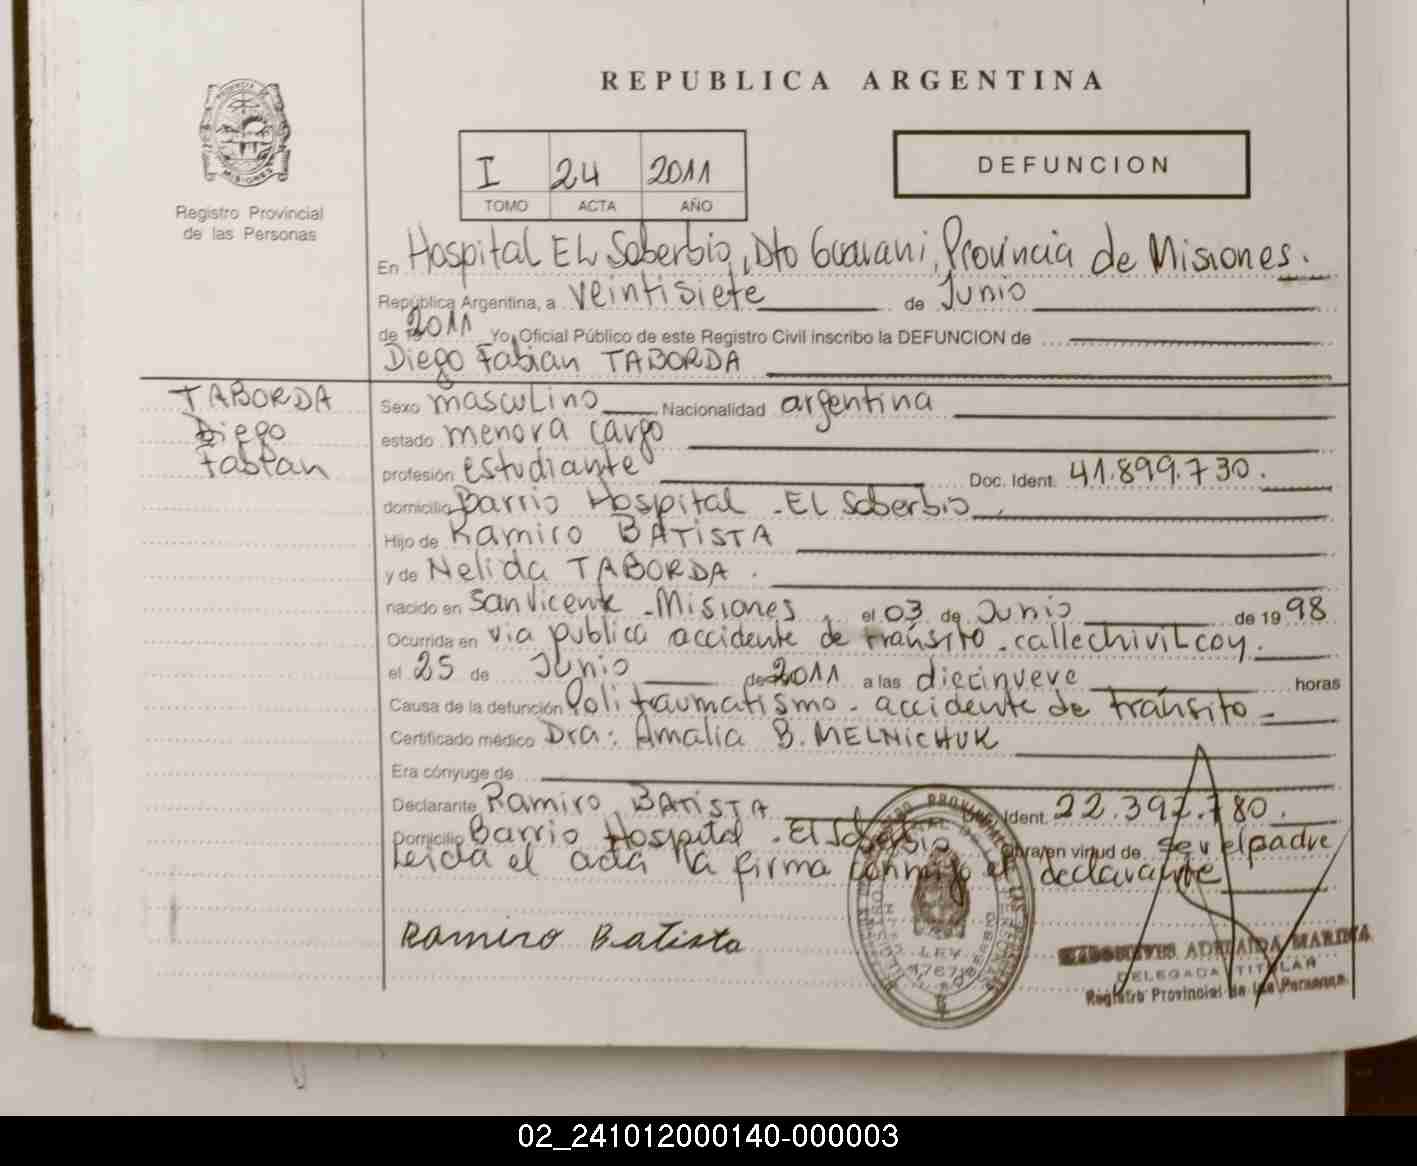 REPUBLICA ARGENTINA
PROVINCIA DE MISIONES
Registro Provincial
de las Personas
I 24 2011
TOMO ACTA AÑO
DEFUNCION
En Hospital EL Soberbio, Dto Guarani, Provincia de Misiones.
República Argentina, a veintisiete de Junio
de 19 2011 Yo, Oficial Público de este Registro Civil inscribo la DEFUNCION de
Diego Fabian TABORDA
TABORDA
Diego
Fabian
Sexo masculino Nacionalidad argentina
estado menor a cargo
profesión estudiante Doc. Ident. 41.899.730.
domicilio Barrio Hospital - EL Soberbio
Hijo de Ramiro BATISTA
y de Nelida TABORDA.
nacido en San Vicente - Misiones, el 03 de Junio de 1998
Ocurrida en via publica accidente de tránsito - calle chivilcoy.
el 25 de Junio de 2011 a las diecinueve horas
Causa de la defunción Politraumatismo - accidente de tránsito -
Certificado médico Dra: Amalia B. MELNICHUK
Era cónyuge de
Declarante Ramiro BATISTA Doc. Ident. 22.392.780.
Domicilio Barrio Hospital - El Soberbio Obra en virtud de ser el padre
Leida el acta la firma conmigo el declarante
Ramiro Batista
LEY
ADELAIDA MARINA
DELEGADA TITULAR
Registro Provincial de las Personas
02_241012000140-000003